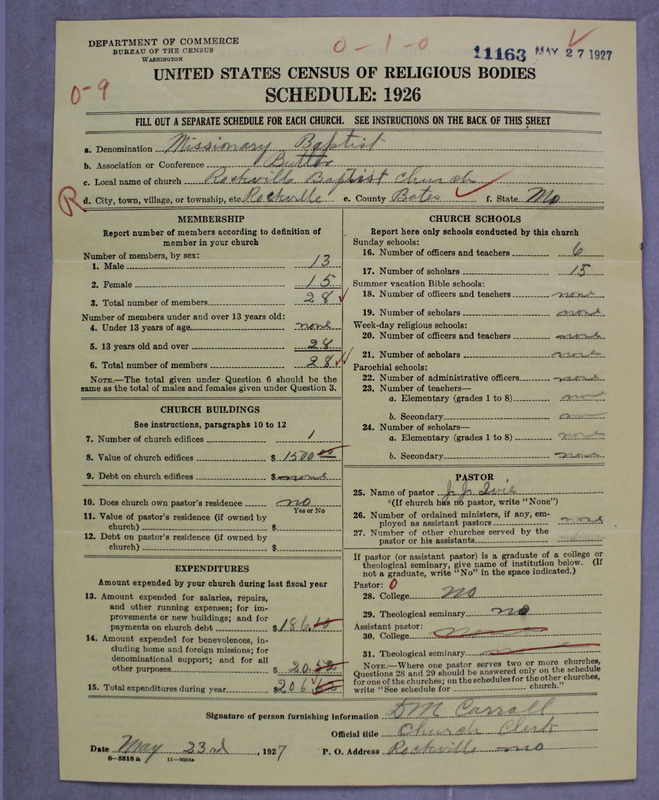 DEPARTMENT OF COMMERCE
BUREAU OF THE CENSUS
WASHINGTON
0-1-0
11163 MAY 27 1927
0-9
UNITED STATES CENSUS OF RELIGIOUS BODIES
SCHEDULE: 1926
FILL OUT A SEPARATE SCHEDULE FOR EACH CHURCH. SEE INSTRUCTIONS ON THE BACK OF THIS SHEET
a. Denomination Missionary Baptist
b. Association or Conference Butler
c. Local name of church Rockville Baptist Church
R d. City, town, village, or township, etc. Rockville e. County Bates f. State Mo
MEMBERSHIP
Report number of members according to definition of
member in your church
Number of members, by sex:
1. Male 13
2. Female 15
3. Total number of members 28
Number of members under and over 13 years old:
4. Under 13 years of age none
5. 13 years old and over 28
6. Total number of members 28
NOTE.—The total given under Question 6 should be the
same as the total of males and females given under Question 3.
CHURCH BUILDINGS
See instructions, paragraphs 10 to 12
7. Number of church edifices 1
8. Value of church edifices $ 1500.00
9. Debt on church edifices $ none
10. Does church own pastor's residence no
Yes or No
11. Value of pastor's residence (if owned by
church) $
12. Debt on pastor's residence (if owned by
church) $
EXPENDITURES
Amount expended by your church during last fiscal year
13. Amount expended for salaries, repairs,
and other running expenses; for im-
provements or new buildings; and for
payments on church debt $ 186.
14. Amount expended for benevolences, in-
cluding home and foreign missions; for
denominational support; and for all
other purposes $ 20.
15. Total expenditures during year $ 206.
CHURCH SCHOOLS
Report here only schools conducted by this church
Sunday schools:
16. Number of officers and teachers 6
17. Number of scholars 15
Summer vacation Bible schools:
18. Number of officers and teachers none
19. Number of scholars none
Week-day religious schools:
20. Number of officers and teachers none
21. Number of scholars none
Parochial schools:
22. Number of administrative officers none
23. Number of teachers—
a. Elementary (grades 1 to 8) none
b. Secondary
24. Number of scholars—
a. Elementary (grades 1 to 8) none
b. Secondary none
PASTOR
25. Name of pastor J. J. Ivie
(If church has no pastor, write "None")
26. Number of ordained ministers, if any, em-
ployed as assistant pastors none
27. Number of other churches served by the
pastor or his assistants
If pastor (or assistant pastor) is a graduate of a college or
theological seminary, give name of institution below. (If
not a graduate, write "No" in the space indicated.)
Pastor: 0
28. College no
29. Theological seminary no
Assistant pastor:
30. College
31. Theological seminary
NOTE.—Where one pastor serves two or more churches,
Questions 28 and 29 should be answered only on the schedule
for one of the churches; on the schedules for the other churches,
write "See schedule for church."
Signature of person furnishing information D M Carroll
Official title Church Clerk
Date May 23rd, 1927 P. O. Address Rockville Mo
8—5518a 11—9954a